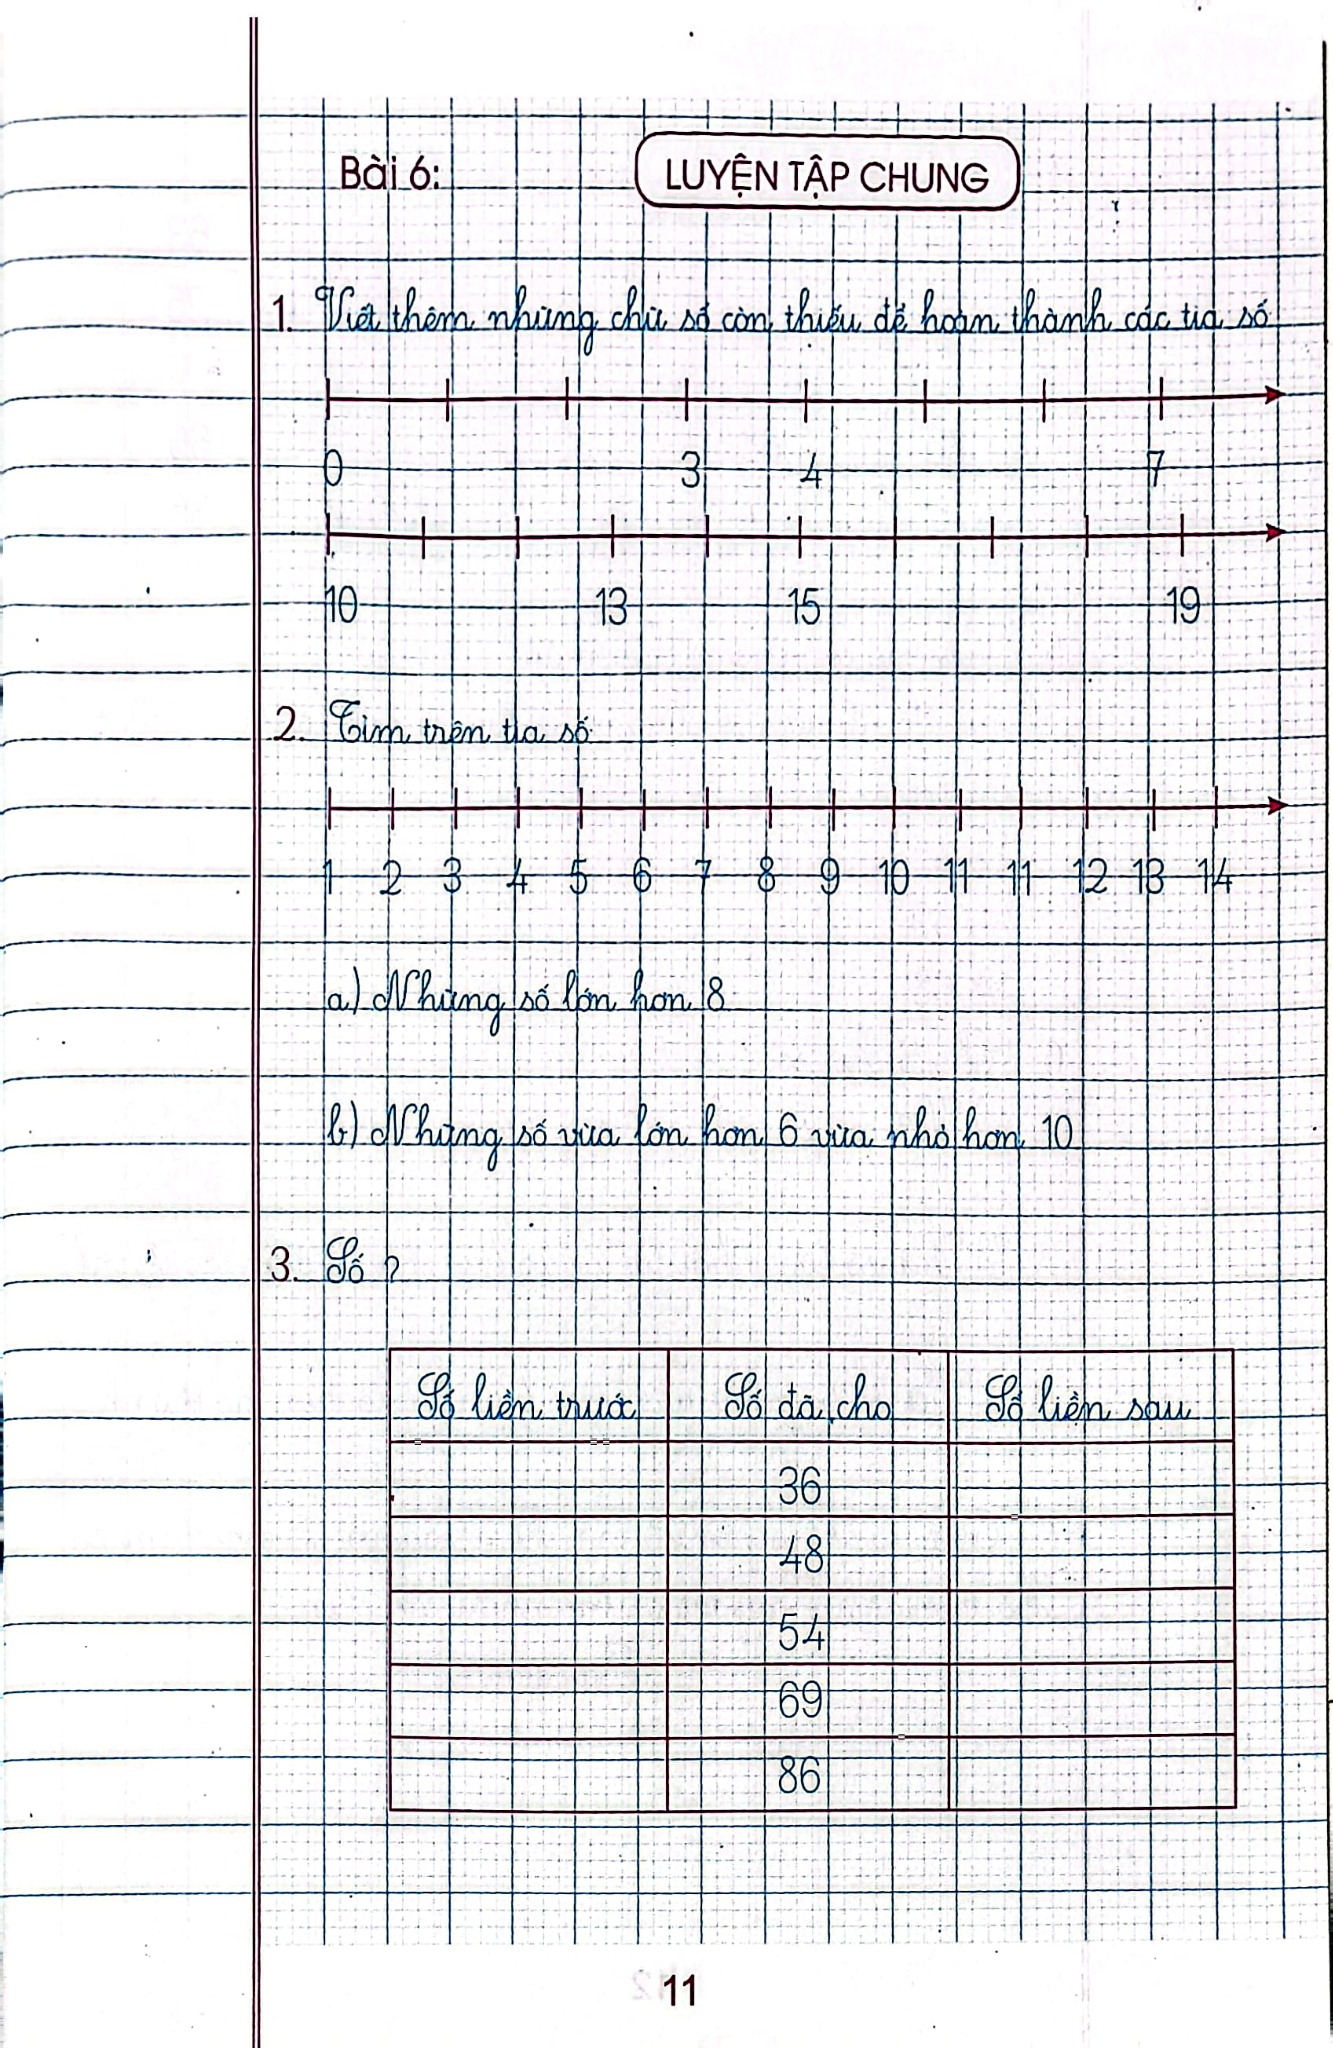 Bài 6: LUYỆN TẬP CHUNG
1. Viết thêm những chữ số còn thiếu để hoàn thành các tia số
0 3 4 7
10 13 15 19
2. Tìm trên tia số
1 2 3 4 5 6 7 8 9 10 11 11 12 13 14
a) Những số lớn hơn 8
b) Những số vừa lớn hơn 6 vừa nhỏ hơn 10
3. Số ?
Số liền trước Số đã cho Số liền sau
36
48
54
69
86
11